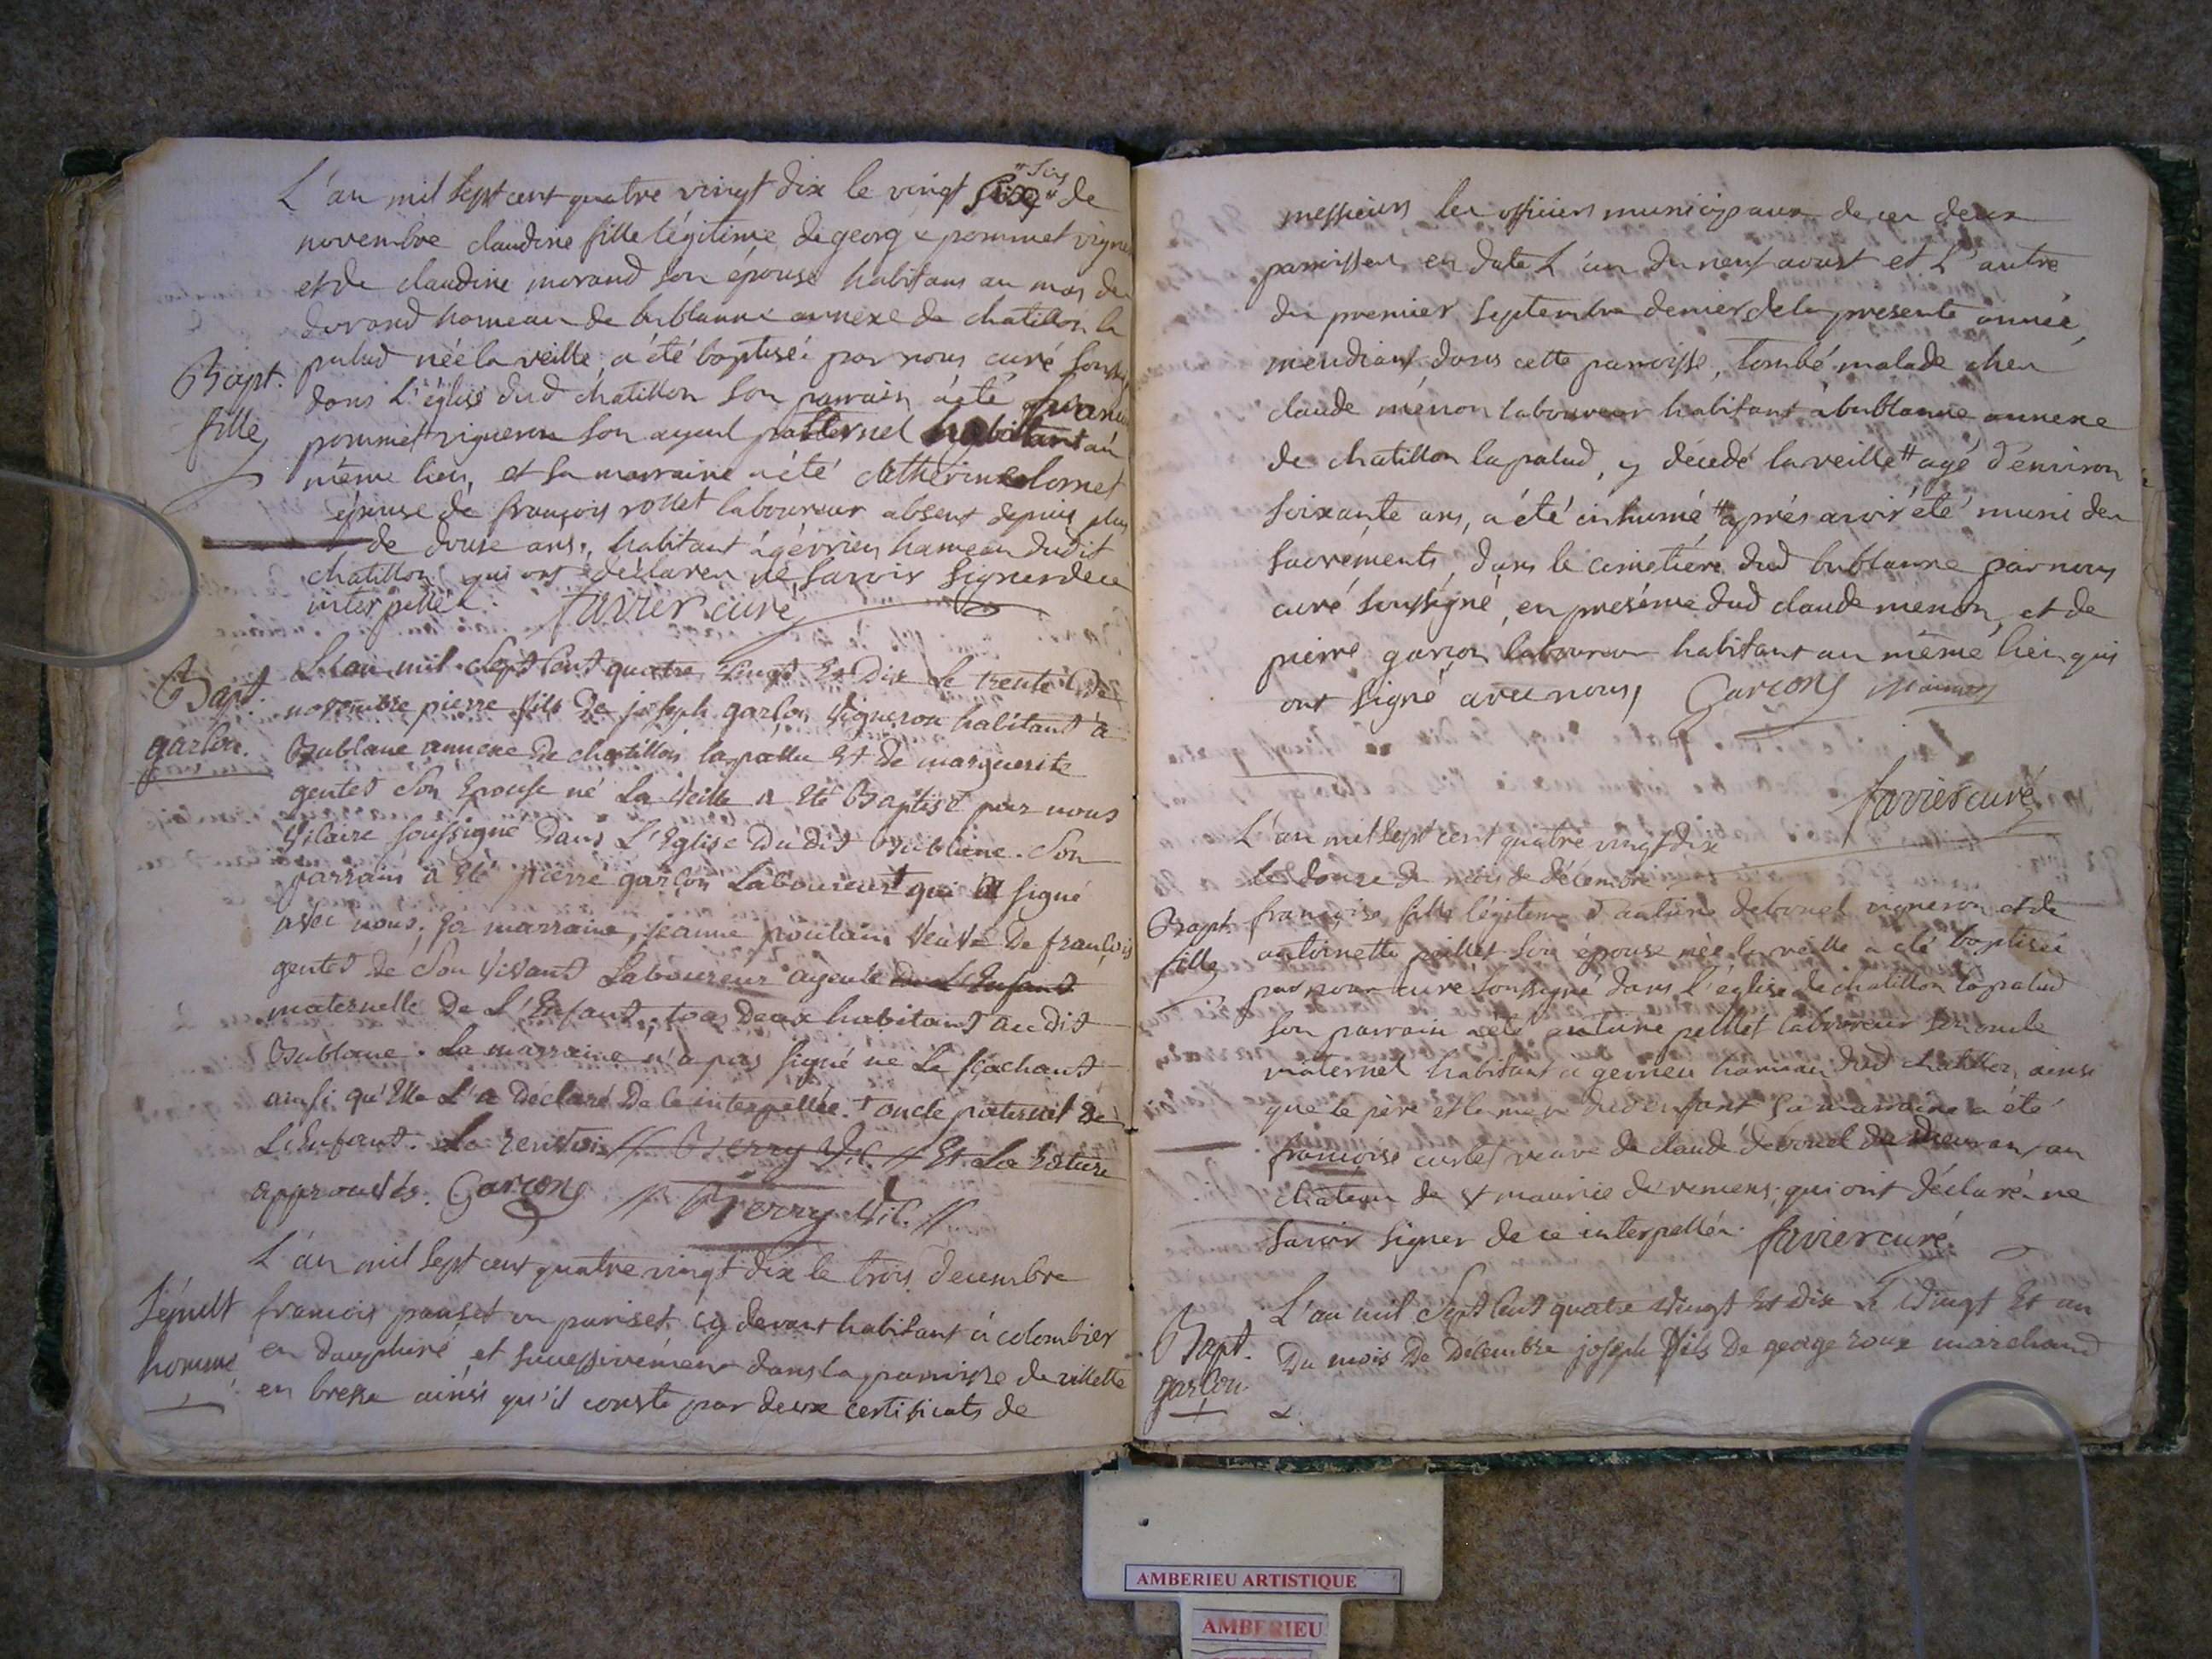 L'an mil sept cent quatre vingt dix le vingt "six" de
novembre claudine fille légitime de george pommet vigne
et de claudine morand son épouse habitans au mas de
durand hameau de bublanne annexe de chatillon la
palud née la veille, a été baptisée par nous curé souss
Bapt.
fille
dans L'église dud chatillon son parrain a été
pommet vigneron son ayeul paternel habitant au
même lieu, et sa marraine a été Cathérine lornet
épouse de françois rollet laboureur absent depuis plus
de douse ans, habitant à gévrieu hameau dudit
chatillon qui ont déclarer ne savoir signer de ce
interpellés. favier curé
Bapt
garson.
L'an mil sept cent quatre vingt et dix le trente de
novembre pierre fils de joseph garson vigneron habitant à
Bublane annexe de chatillon lapallu et de marguerite
gentet son Epouse né La veille a eté Baptisé par nous
Vicaire soussigné dans L'Eglise du dit Bublane. Son
parrain a eté pierre garson Laboureur + qui a signé
avec nous; sa marraine, jeanne poulain veuve de françois
gentet de son vivant Laboureur ayeule de L'Enfant
maternelle de L'Enfant, tous deux habitant audit
Bublane. La marraine n'a pas signé ne Le sçachant
ainsi qu'elle L'a déclaré de ce interpellée. + oncle paternel de
L'Enfant. Le renvoi // Berry Vic. // Et La rature
approuvés. Garcong // Berry Vic. //
Sépult
homme
L'an mil sept cent quatre vingt dix le trois decembre
francois panset ou pariset, cy devant habitant à colombier
en dauphiné et successivement dans la paroisse de villette
en bresse ainsi qu'il conste par deux certificats de
messieurs les officiers municipaux de ces deux
paroisses en date L'un du neuf aoust et L'autre
du premier septembre dernier de la presente année,
mendiant dans cette paroisse, tombé malade chez
claude menon laboureur habitant à bublanne annexe
de chatillon lapalud, y décédé la veille # agé d'environ
soixante ans, a été inhumé # après avoir été muni des
sacréments, dans le cimetière dud bublanne par nous
curé soussigné, en presénce dud claude menon, et de
pierre garson laboureur habitant au même lieu qui
ont signé avec nous, Garcong
favier curé
L'an mil sept cent quatre vingt dix
le douze du mois de décembre
Bapt.
fille
françoise fille légitime d'antoine debouel vigneron et de
antoinette peillet son épouse née la veille a eté baptisée
par nous curé soussigné dans l'église de chatillon la palud
son parrain a été antoine peillet laboureur son oncle
maternel habitant a gevrieu hameau dud chatillon, ainsi
que le père et la mere dud enfant sa marraine a été
françoise curlet veuve de claude debouel au
château de st maurice de remens; qui ont déclaré ne
savoir signer de ce interpellés. favier curé
Bapt.
garson.
L'an mil sept cent quatre vingt et dix Le vingt et un
Du mois De Décembre joseph fils De george roux marchand
AMBERIEU ARTISTIQUE
AMBERIEU